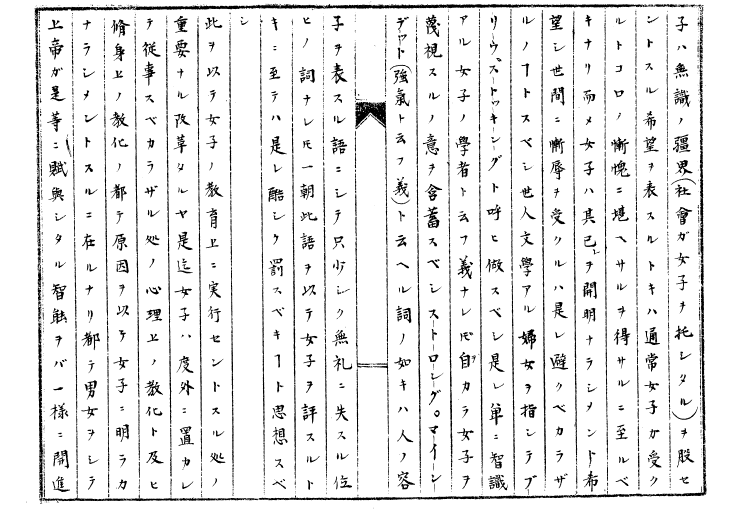 子ハ無識ノ疆界(社會ガ女子ヲ托シタル)ヲ脱セ
ントスル希望ヲ表スルトキハ通常女子ガ受ク
ルトコロノ慚愧ニ堪ヘサルヲ得サルニ至ルベ
キナリ而メ女子ハ其己レヲ開明ナラシメント希
望シ世間ニ慚辱ヲ受クルハ是レ避クベカラザ
ルノヿトスベシ世人文學アル婦女ヲ指シテブ
リウストッキーングト呼ヒ做スベシ是レ単ニ智識
アル女子ノ學者ト云フ義ナレ𪜈自カラ女子ヲ
蔑視スルノ意ヲ含蓄スベシストーロング。マイーン
デット(強氣ト云フ義)ト云ヘル詞ノ如キハ人ノ容
子ヲ表スル語ニシテ只少シク無礼ニ失スル位
ヒノ詞ナレ𪜈一朝此語ヲ以テ女子ヲ評スルト
キニ至テハ是レ酷シク罰スベキヿト思想スベ
シ
此ヲ以テ女子ノ教育上ニ実行セントスル処ノ
重要ナル改革タルヤ是迄女子ハ度外ニ置カレ
テ従事スベカラザル処ノ心理上ノ教化ト及ヒ
脩身上ノ教化ノ都テ原因ヲ以テ女子ニ明ラカ
ナラシメントスルニ在ルナリ都テ男女ヲシテ
上帝ガ是等ニ賦與シタル智能ヲバ一様ニ開進